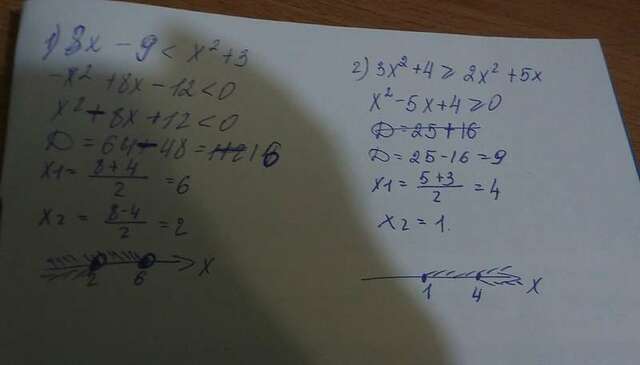 1) 8x - 9 < x² + 3
-x² + 8x - 12 < 0
x² - 8x + 12 < 0
D = 64 - 48 = 16
x1 = (8+4)/2 = 6
x2 = (8-4)/2 = 2
2 6 x
2) 3x² + 4 ⩾ 2x² + 5x
x² - 5x + 4 ⩾ 0
D = 25 + 16
D = 25 - 16 = 9
x1 = (5+3)/2 = 4
x2 = 1.
1 4 x